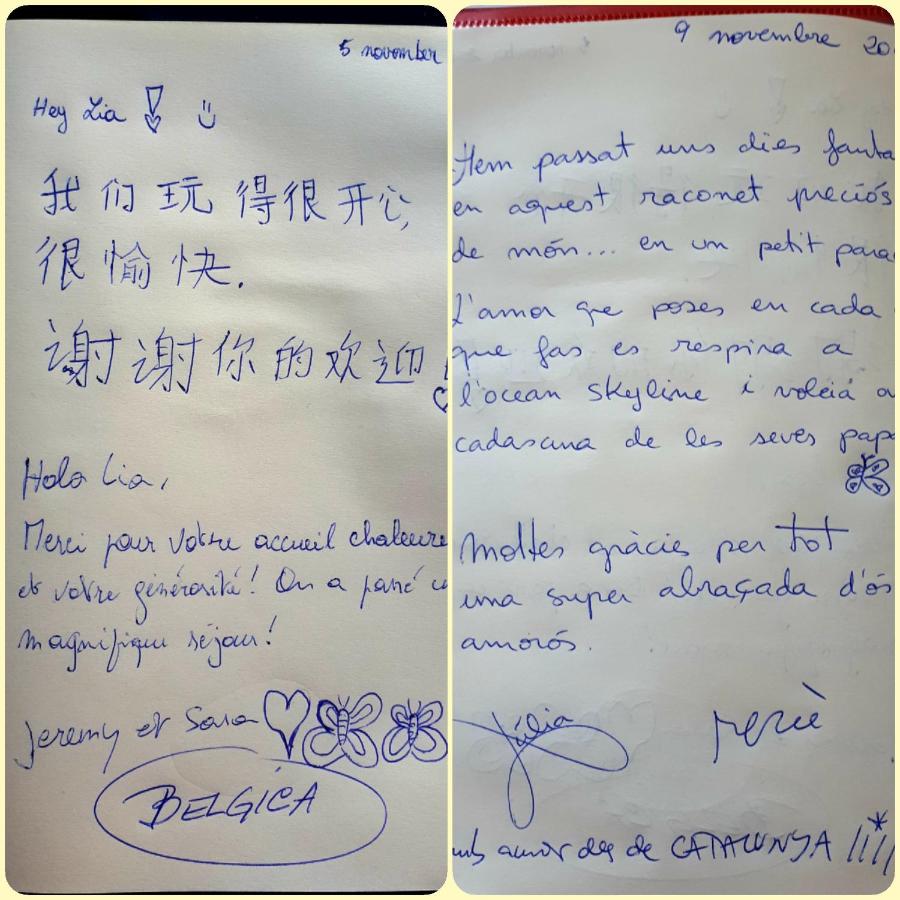 5 november
Hey Lia ! :)
我们玩得很开心,
很愉快.
谢谢你的欢迎
Hola Lia,
Merci pour votre accueil chaleure
et votre générosité! On a passé
magnifique séjour!
Jeremy et Sara
BELGICA
9 novembre 20
Hem passat uns dies fanta
en aquest raconet preciós
de món... en un petit para
L'amor que poses en cada
que fas es respira a
l'ocean skyline i voleiá a
cadascuna de les seves papa
Moltes gràcies per tot
una super abraçada d'ós
amorós.
Júlia
amor des de CATALUNYA !!!!